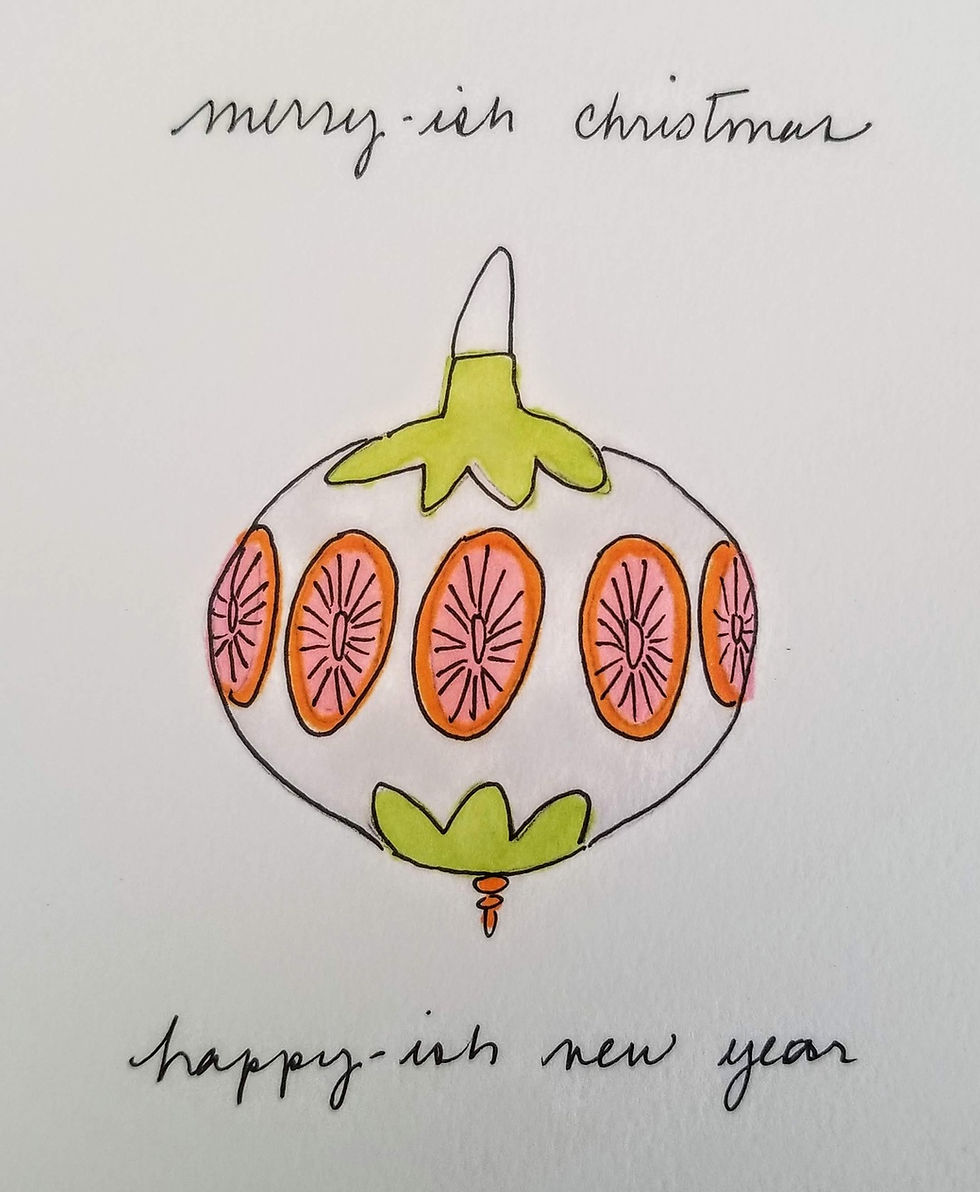 merry-ish christmas
happy-ish new year